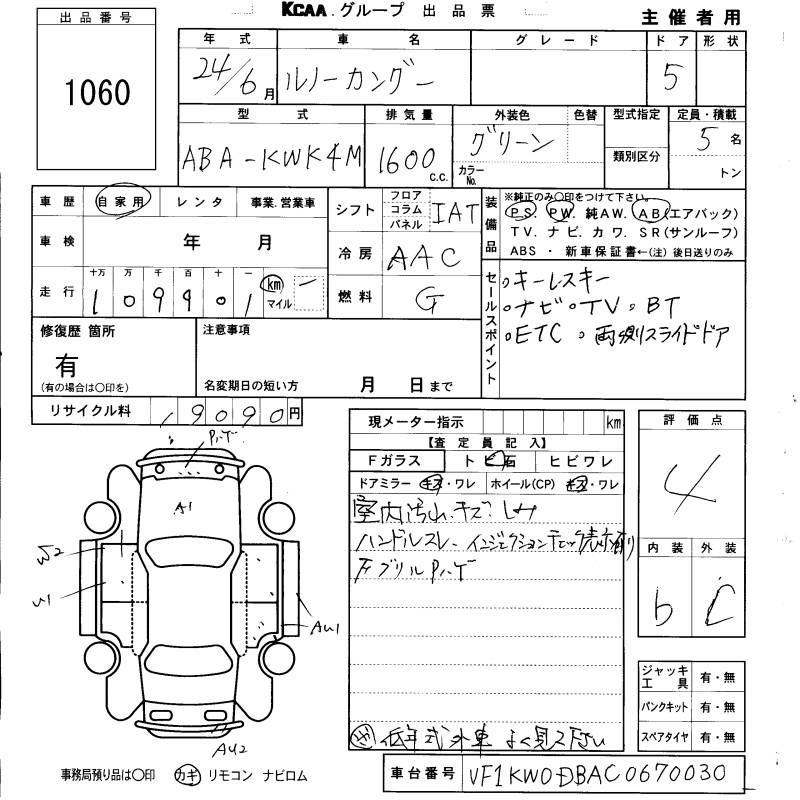 KCAA.グループ 出品票
主催者用
出品番号
1060
年式 車名 グレード ドア 形状
24/6月 ルノーカングー 5
型式 排気量 外装色 色替 型式指定 定員・積載
ABA-KWK4M 1600c.c. グリーン 5名
カラーNo. 類別区分 トン
車歴 自家用 レンタ 事業.営業車
シフト フロア コラム パネル IAT
装備品 ※純正のみ○印をつけて下さい。
PS. PW. 純AW. AB(エアバック)
TV. ナビ. カワ. SR(サンルーフ)
ABS ・ 新車保証書←(注)後日送りのみ
車検 年 月
冷房 AAC
走行 十万 万 千 百 十 一
109901 km マイル
燃料 G
セールスポイント
・キーレスキー
・ナビ・TV・BT
・ETC・両側スライドドア
修復歴 箇所
有
(有の場合は○印を)
注意事項
名変期日の短い方 月 日まで
リサイクル料 19090円
現メーター指示 km
【査定員記入】
Fガラス ト ビ 石 ヒビワレ
ドアミラー キズ・ワレ ホイール(CP) キズ・ワレ
室内汚れ.キズ.シミ
ハンドルスレ、インジェクションチェック表示有り
Fグリルパハゲ
低年式外車 よく見て下さい
評価点
4
内装 外装
b C
ジャッキ工具 有・無
パンクキット 有・無
スペアタイヤ 有・無
A1
W2
U1
AU1
AU2
事務局預り品は○印 カギ リモコン ナビロム
車台番号 VF1KW0DBAC0670030